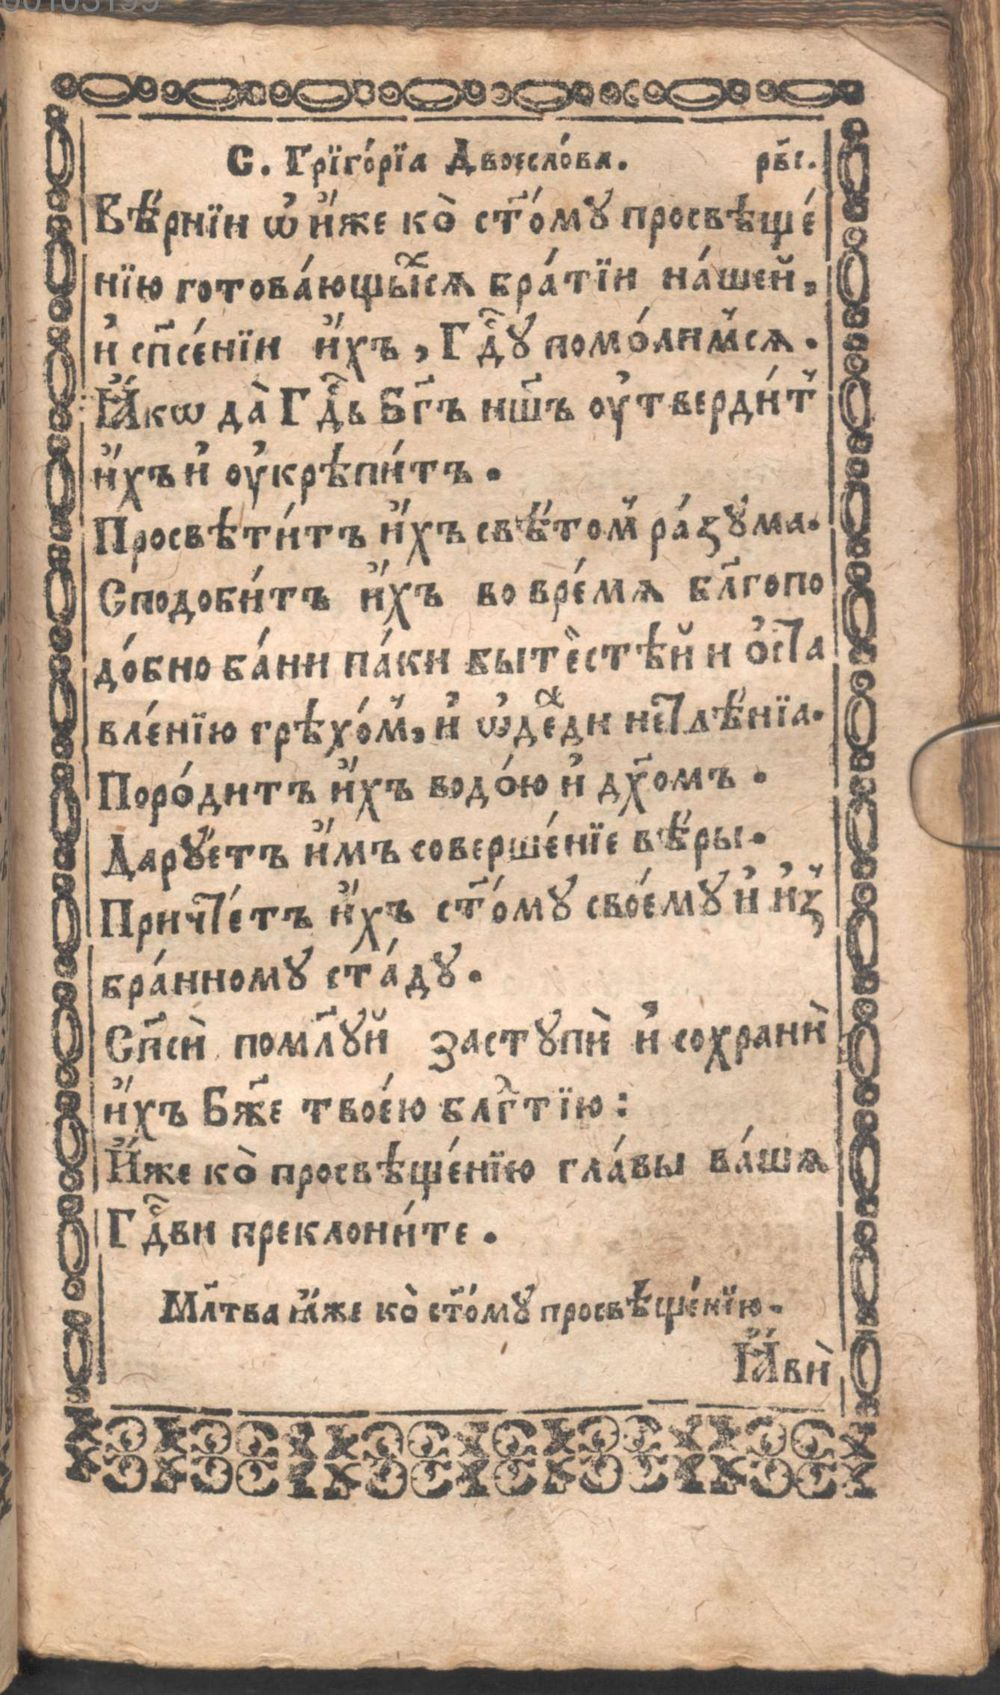 С. Грїго́рїа Двоесло́ва. рв҃і.
Вѣ́рнїи ѡ҆ и҆́же ко̀ ст҃о́мꙋ просвѣще́
нїю готова́ющыⷯсѧ бра́тїи на́шей,
и҆ сп҃се́нїи и҆́хъ, Гдⷭ҇ꙋ помо́лимсѧ.
Ꙗ҆́кѡ да̀ Гдⷭ҇ь Бг҃ъ нш҃ъ оу҆тверди́т
и҆́хъ и҆ оу҆крѣпи́тъ.
Просвѣти́тъ и҆́хъ свѣ́том ра́зꙋма.
Сподоби́тъ и҆́хъ во вре́мѧ бл҃гопо
до́бно ба́ни па́ки бытїѐстѣй и ѻ҆ста
вле́нїю грѣхо́м, и҆ ѡ҆де́ⷤди нетлѣ́нїа.
Поро́дитъ и҆́хъ водо́ю и҆ дх҃омъ.
Дарꙋ́етъ и҆̀мъ соверше́нїе вѣ́ры.
Причте́тъ и҆́хъ ст҃о́мꙋ своемꙋ́ и҆ и҆з̾
бра́нномꙋ ста́дꙋ.
Сп҃сѝ помл҃ꙋй застꙋпѝ и҆ сохранѝ
и҆́хъ Бж҃е твое́ю блгⷣтїю:
И҆́же ко̀ просвѣще́нїю гла́вы ва́шѧ
Гдⷭ҇ви преклони́те.
Мл҃тва ꙗ҆́же ко̀ ст҃о́мꙋ просвѣще́нїю.
Ꙗ҆вѝ
00103199